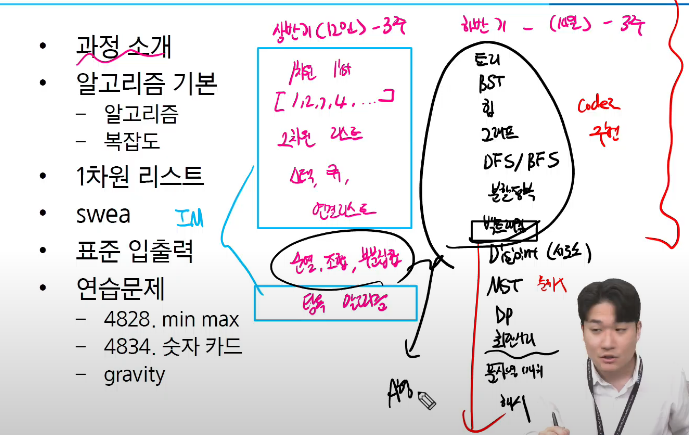 • 과정 소개
• 알고리즘 기본
– 알고리즘
– 복잡도
• 1차원 리스트
• swea
IM
• 표준 입출력
• 연습문제
– 4828. min max
– 4834. 숫자 카드
– gravity
상반기 (12일) - 3주
1차원 list
[1, 2, 3, 4, ....]
2차원 리스트
스택, 큐,
연결리스트
순열, 조합, 부분집합
탐욕 알고리즘
하반기 - (10일) - 3주
트리
BST
힙
그래프
DFS/BFS
분할정복
백트래킹
Disjoint (서로소)
MST
DP
최단거리
해시
code로
구현